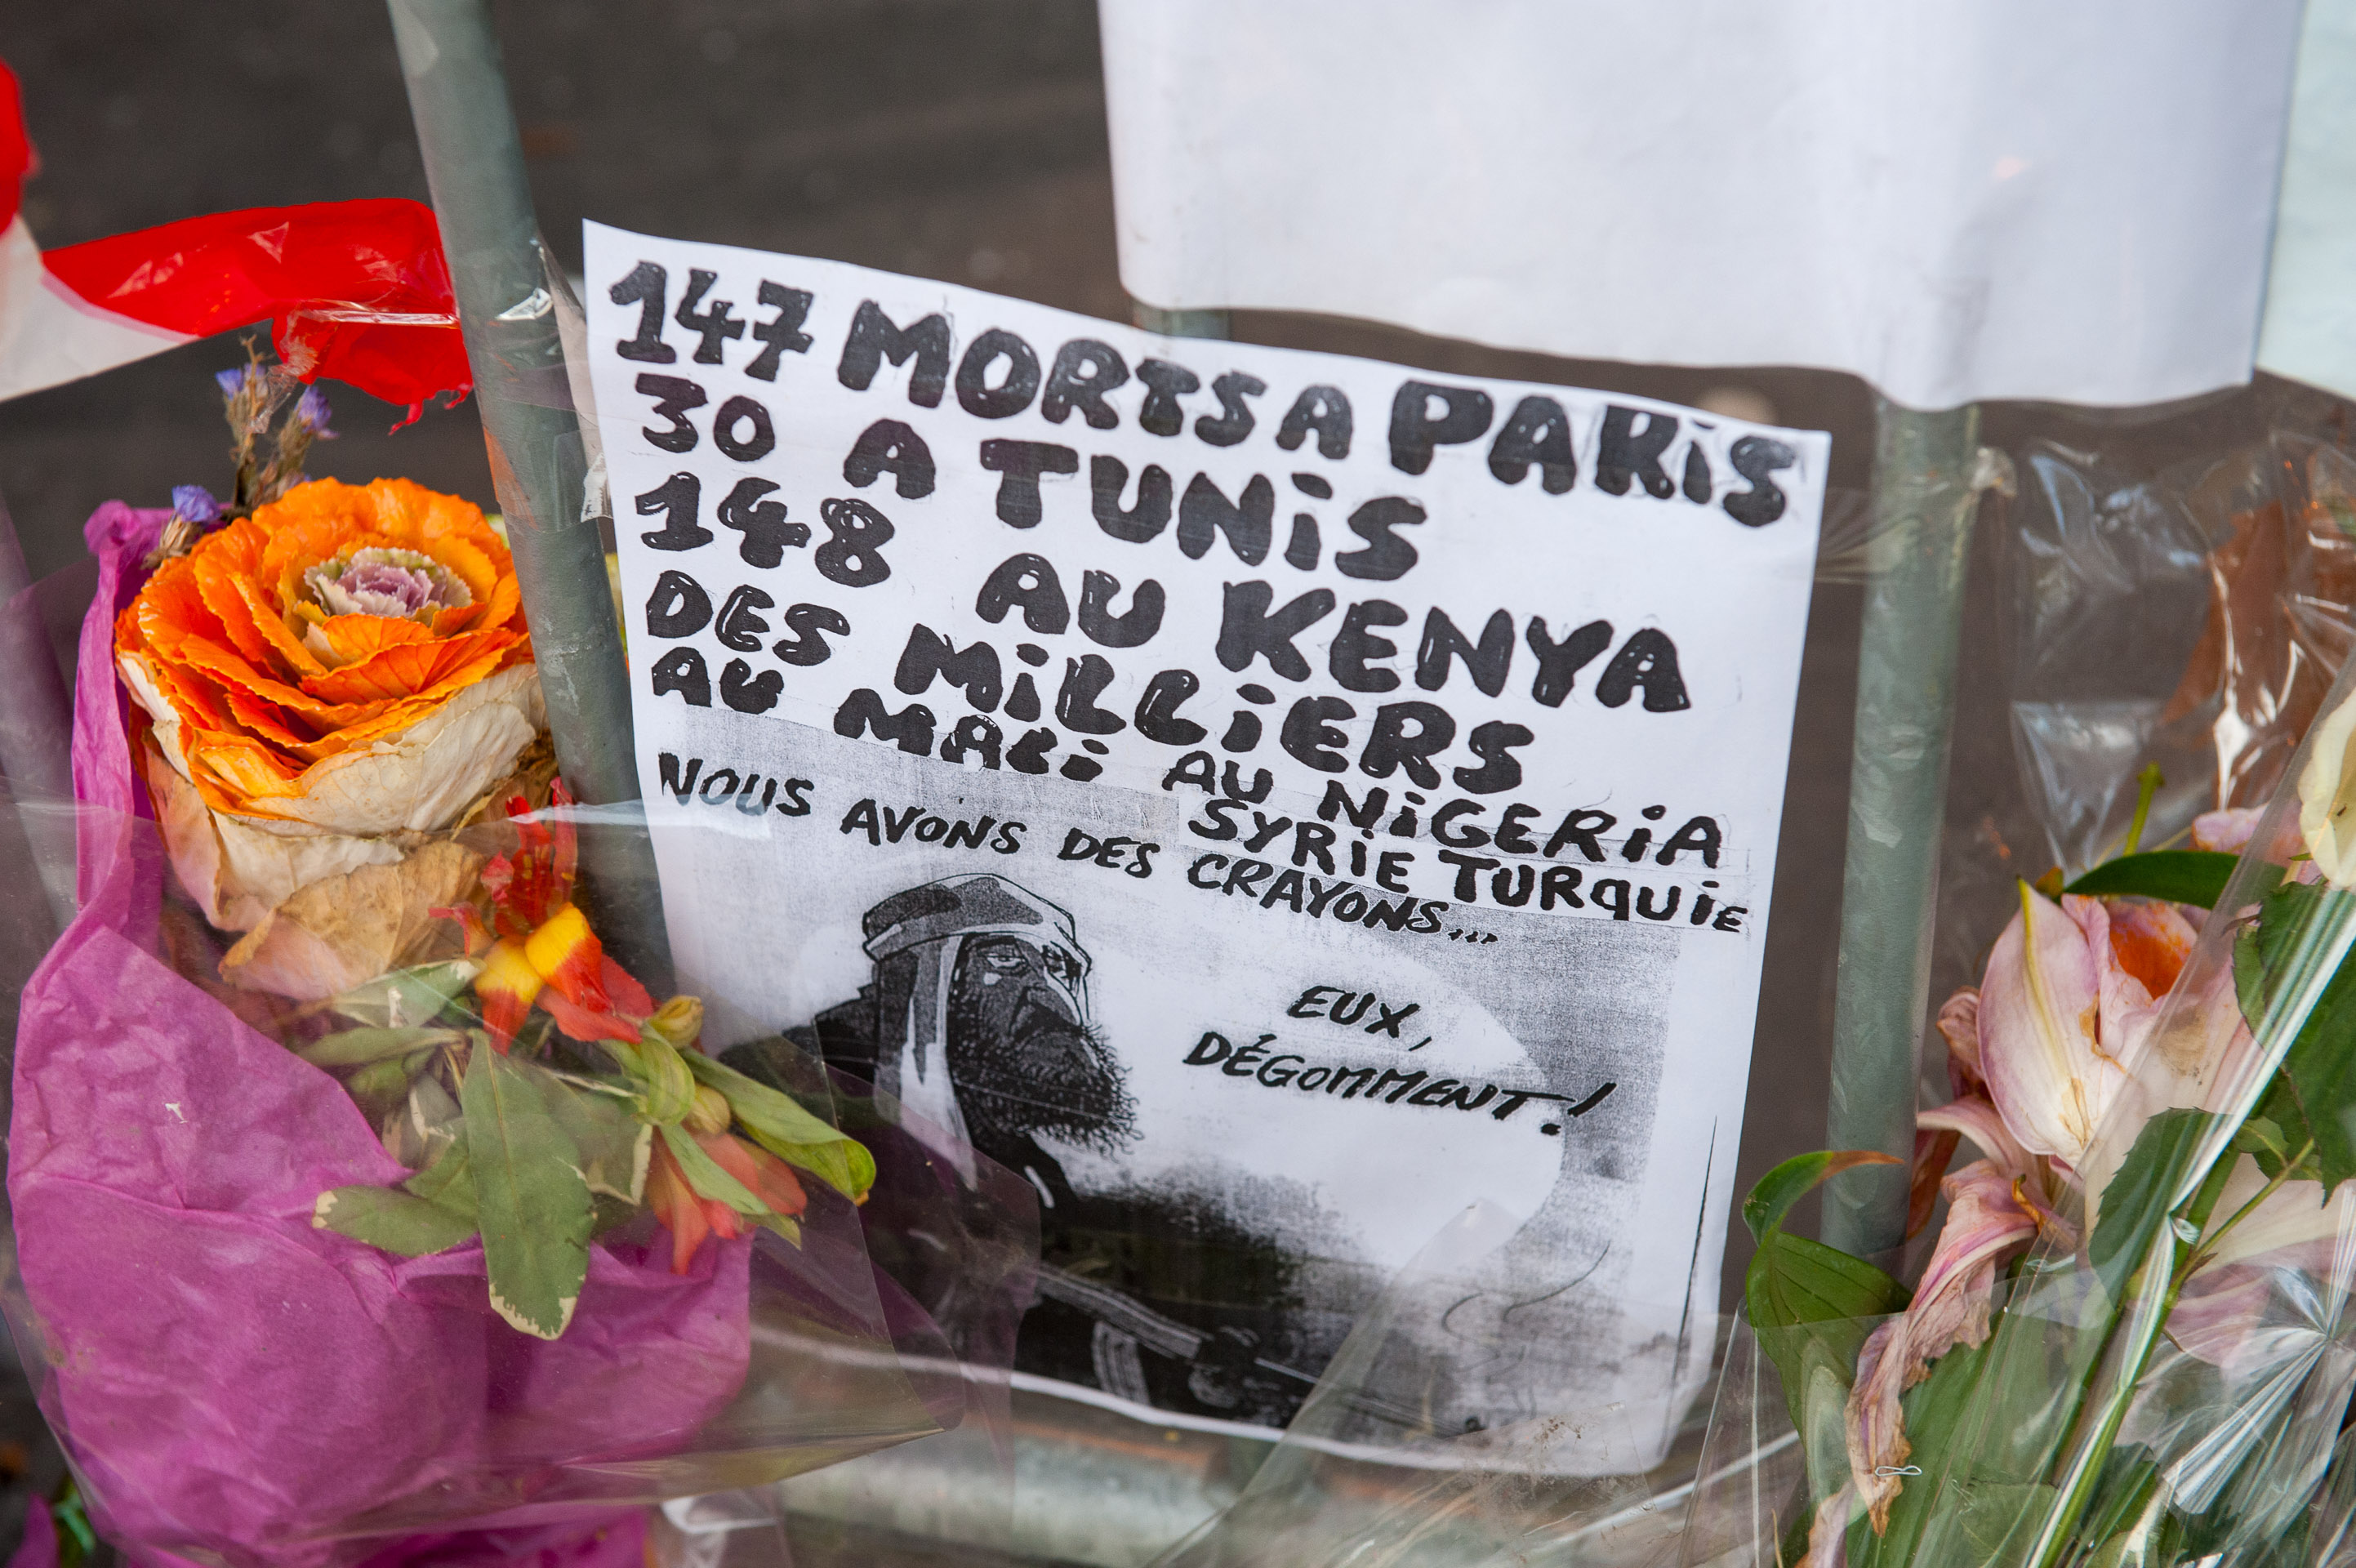 147 MORTS A PARIS
30 A TUNIS
148 AU KENYA
DES MILLIERS
AU MALI AU NIGERIA
SYRIE TURQUIE
NOUS AVONS DES CRAYONS...
EUX,
DÉGOMMENT!